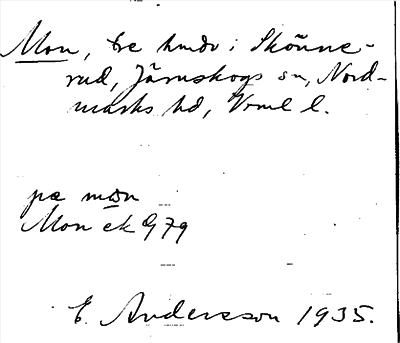 Mon, tre hmdr i Skönne-
rud, Järnskogs sn, Nord-
marks hd, Vrml l.
pæ mɷn
Mon ek 979
E. Andersson 1935.